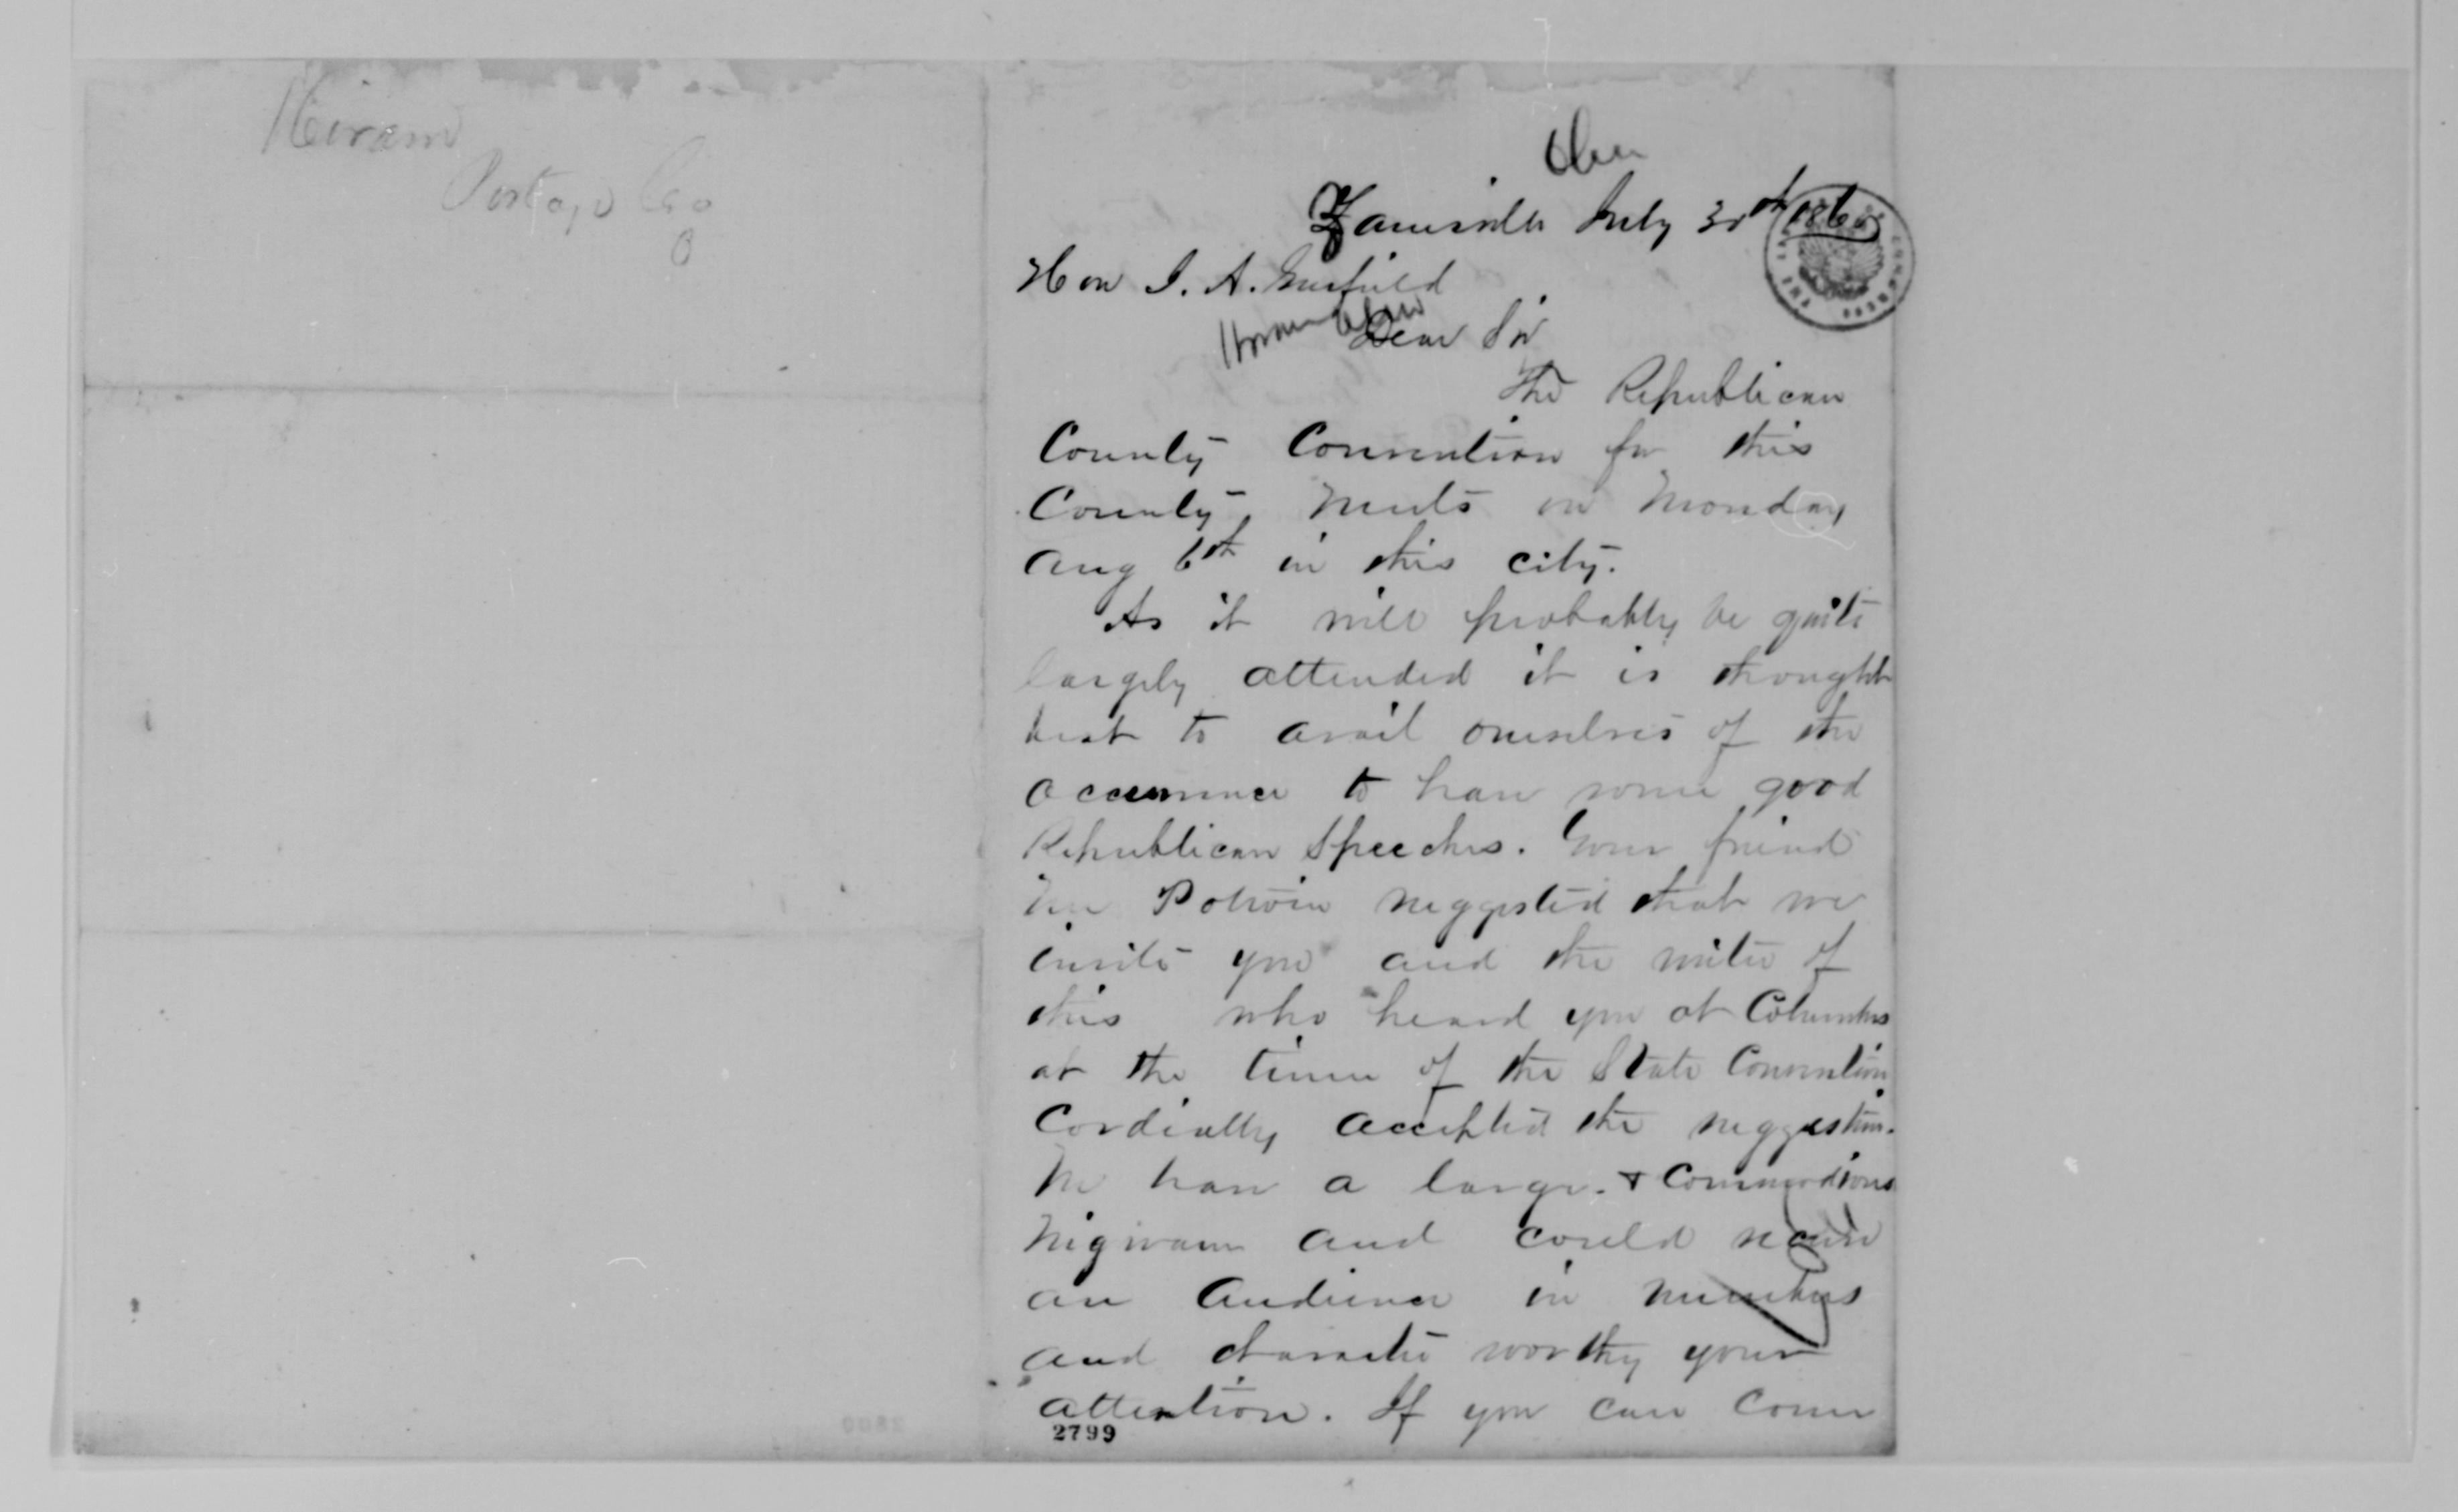 Hiram
Portage Co
O
Ohio
Zanesville July 30th 1860
Hon J. A. Garfield
Hiram Ohio
Dear Sir
The Republican
County Convention for this
County meets on Monday
Aug 6th in this city.
As it will probably be quite
largely attended it is thought
best to avail ourselves of the
occurrence to have some good
Republican Speeches. Your friend
Mr Potwin suggested that we
invite you and the writer of
this who heard you at Columbus
at the time of the State Convention
Cordially accepted the suggestion.
We have a large & Commodious
Wigwam and could secure
an Audience in numbers
and character worthy your
attention. If you can come
2799